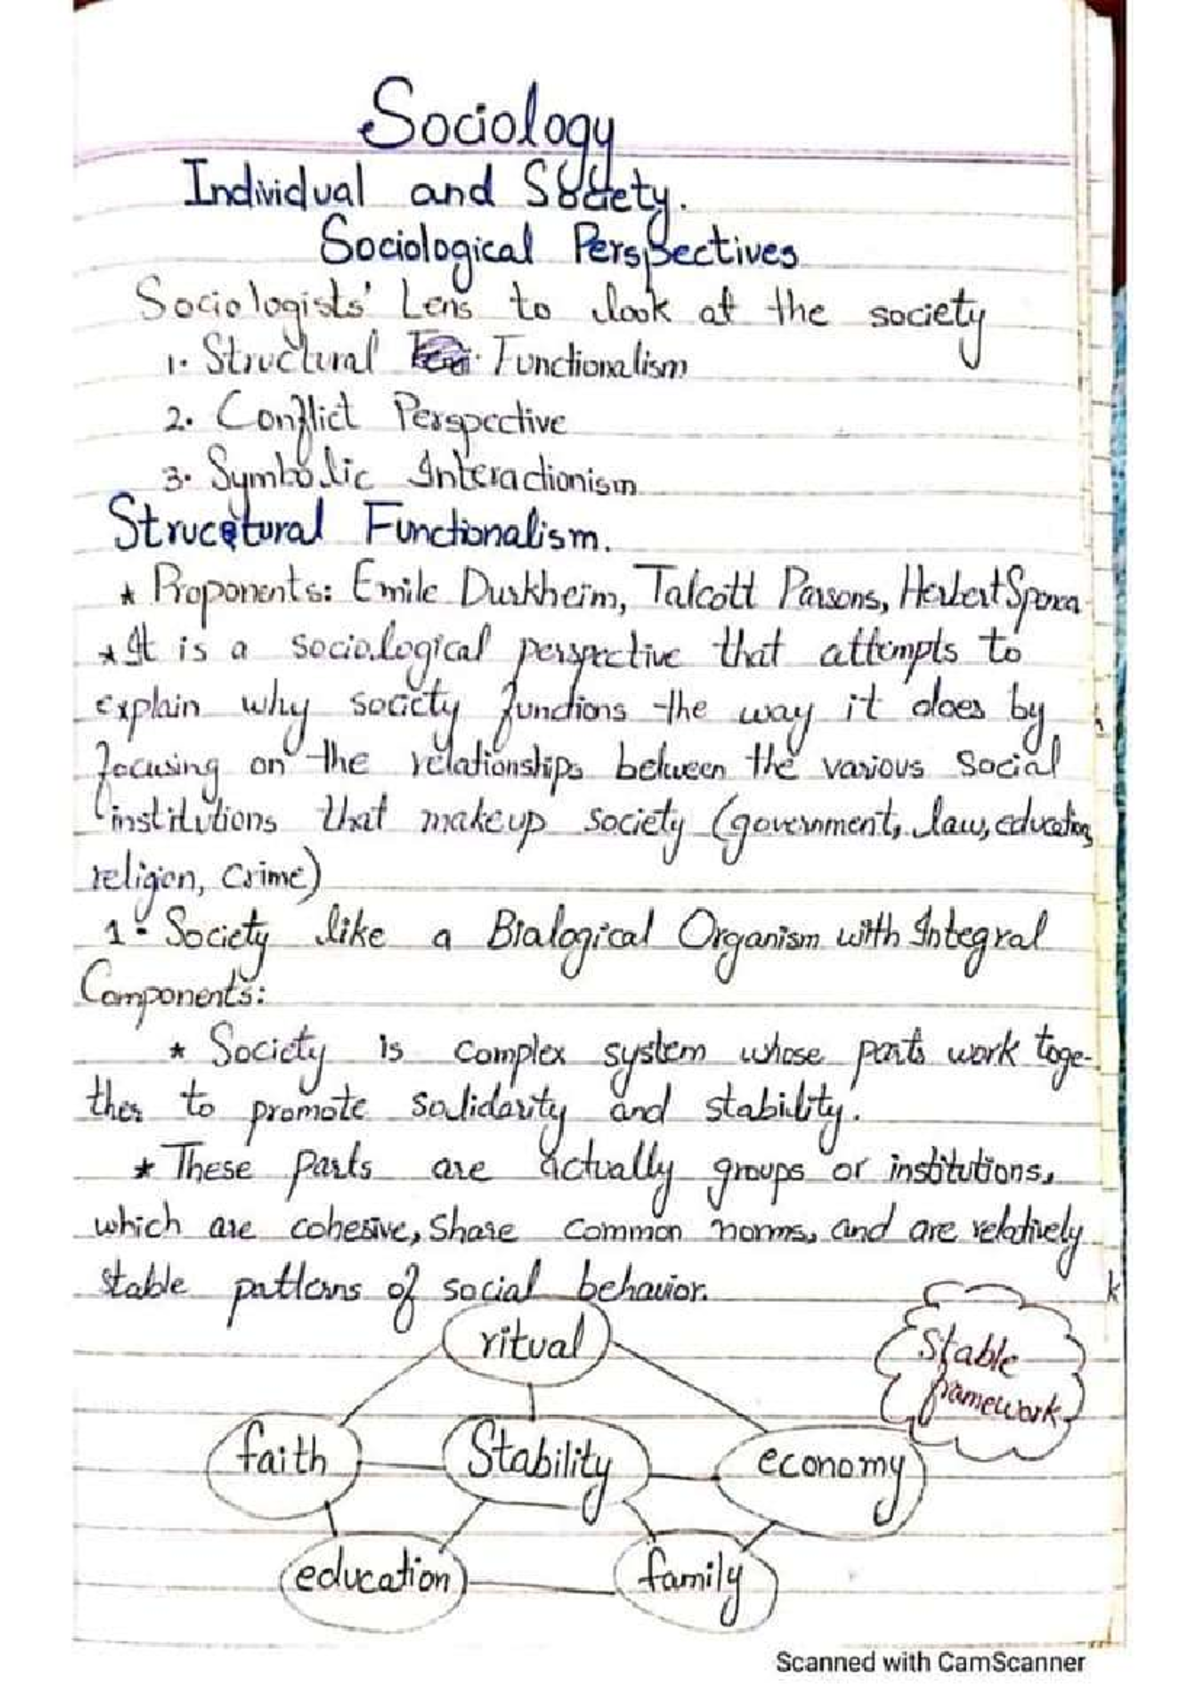 Sociology
Individual and Society.
Sociological Perspectives
Sociologists' Lens to look at the society
1. Structural Functionalism
2. Conflict Perspective
3. Symbolic Interactionism
Structural Functionalism.
* Proponents: Emile Durkheim, Talcott Parsons, Herbert Spencer
* It is a sociological perspective that attempts to
explain why society functions the way it does by
focusing on the relationships between the various social
institutions that makeup society (government, law, education,
religion, crime)
1- Society like a Bialogical Organism with Integral
Components:
* Society is complex system whose parts work toge-
ther to promote solidarity and stability.
* These parts are actually groups or institutions,
which are cohesive, share common norms, and are relatively
stable patterns of social behavior.
ritual
Stable
framework
faith Stability economy
education family
Scanned with CamScanner